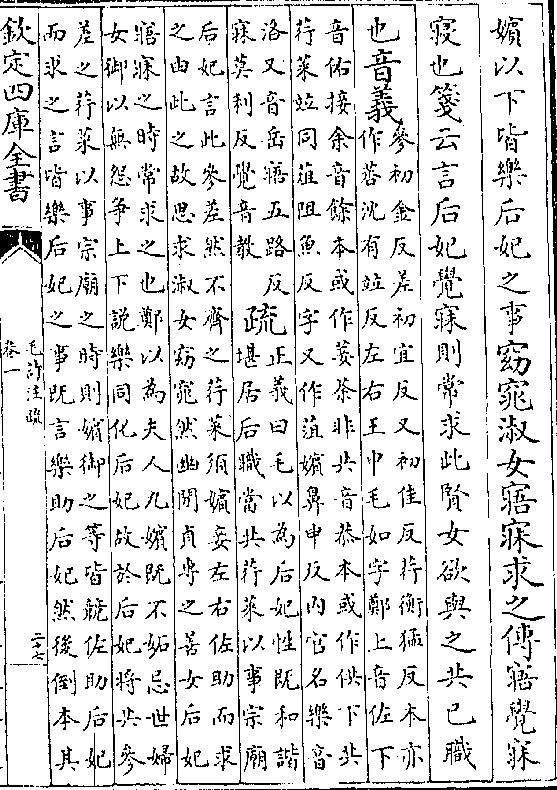 嬪以下皆樂后妃之事窈窕淑女寤寐求之傳寤覺寐
寢也箋云言后妃覺寐則常求此賢女欲與之共已職
也音義參初金反差初宜反又初佳反荇衡猛反本亦
作莕沈有竝反左右王申毛如字鄭上音佐下
音佑接余音餘本或作菨荼非共音恭本或作供下共
荇菜竝同菹阻魚反字又作葅嬪鼻申反内官名樂音
洛又音岳寤五路反
寐莫利反覺音教
疏正義曰毛以為后妃性既和諧
堪居后職當共荇菜以事宗廟
后妃言此參差然不齊之荇菜須嬪妾左右佐助而求
之由此之故思求淑女窈窕然幽閒貞專之善女后妃
寤寐之時常求之也鄭以為夫人九嬪既不妬忌世婦
女御以無怨爭上下說樂同化后妃故於后妃將共參
差之荇菜以事宗廟之時則嬪御之等皆競佐助后妃
而求之言皆樂后妃之事既言樂助后妃然後倒本其
欽定四庫全書
毛詩注疏
卷一
二十七